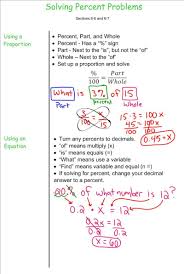 Solving Percent Problems
Sections 6-6 and 6-7
Using a Proportion
• Percent, Part, and Whole
• Percent - Has a "%" sign
• Part - Next to the "is", but not the "of"
• Whole – Next to the "of"
• Set up a proportion and solve
% / 100 = Part / Whole
What is 3% of 15
Part % Whole
3 / 100 = x / 15
15 · 3 = 100 · x
45 = 100x
100 100
0.45 = x
Using an Equation
• Turn any percents to decimals.
• "of" means multiply (x)
• "is" means equals (=)
• "What" means use a variable
• "Find" means variable and equal (n =)
• If solving for percent, change your decimal answer to a percent.
20% of what number is 12?
0.2 · x = 12
0.2x = 12
0.2 0.2
x = 60